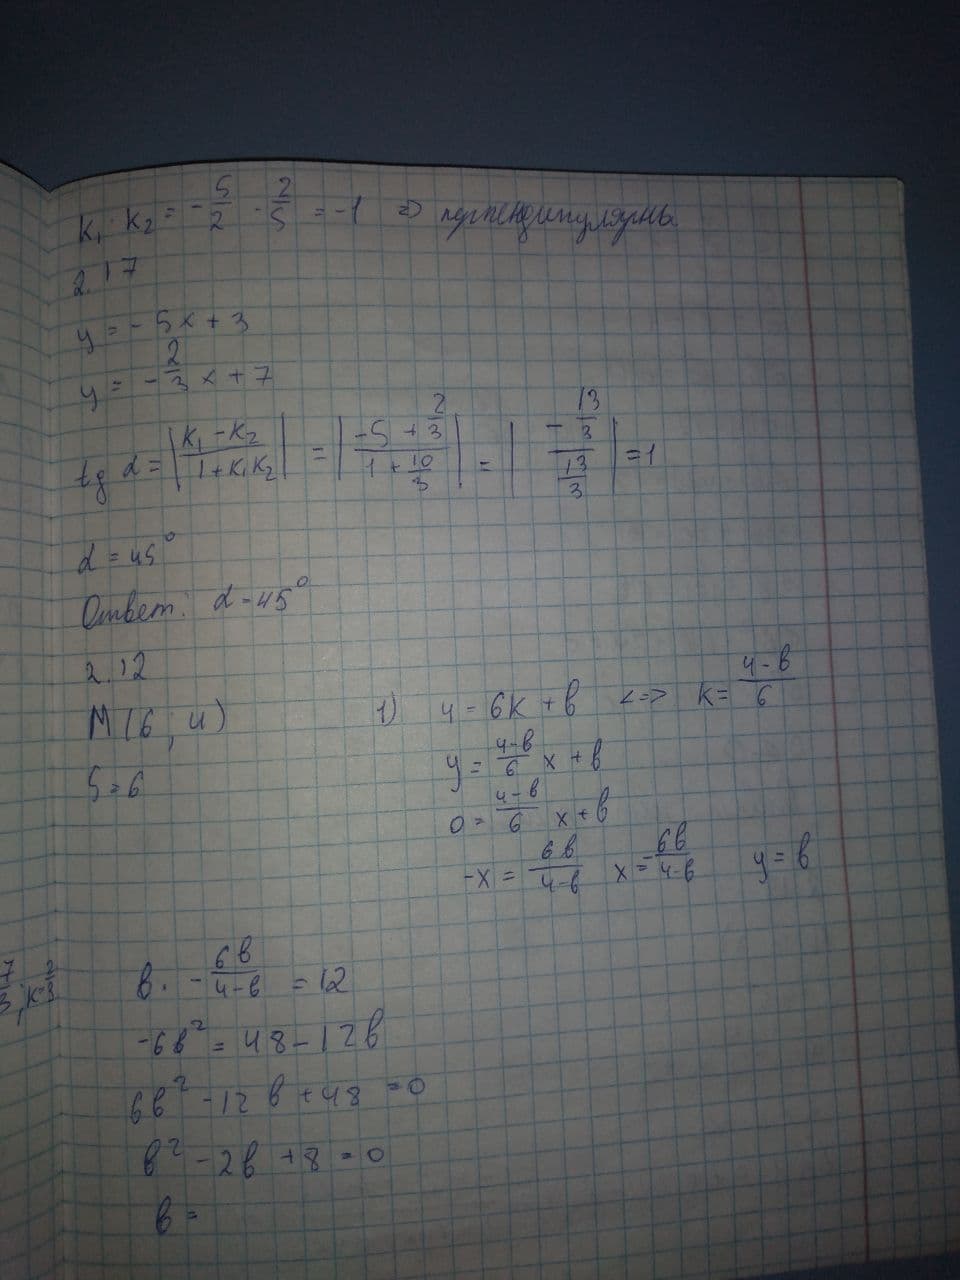 k₁ · k₂ = -5/2 · 2/5 = -1 => перпендикулярны
2.17
y = -5x + 3
y = -2/3 x + 7
tg α = |(k₁ - k₂)/(1 + k₁k₂)| = |(-5 + 2/3)/(1 + 10/3)| = |(-13/3)/(13/3)| = 1
α = 45°
Ответ: α = 45°
2.12
M(6; 4) 1) 4 = 6k + b <=> k = (4-b)/6
S = 6 y = (4-b)/6 x + b
0 = (4-b)/6 x + b
-x = 6b/(4-b) x = -6b/(4-b) y = b
b · -6b/(4-b) = 12
-6b² = 48 - 12b
6b² - 12b + 48 = 0
b² - 2b + 8 = 0
b =